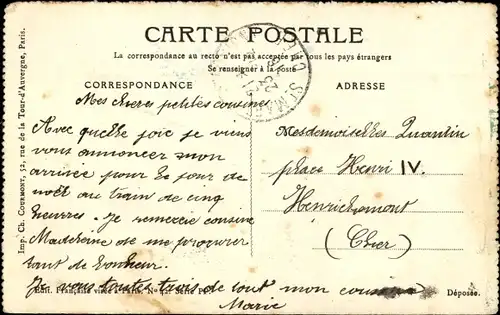 CARTE POSTALE
La correspondance au recto n'est pas acceptée par tous les pays étrangers
Se renseigner à la poste
CORRESPONDANCE
ADRESSE
Mes chères petites cousines
Avec quelle joie je viens
vous annoncer mon
arrivée pour le jour de
noël au train de cinq
heures. Je remercie cousine
Madeleine de me procurer
tant de bonheur.
Je vous toutes de tout mon
Marie
Mesdemoiselles Quantin
place Henri IV.
Henrichemont
(Cher)
Imp. Ch. Courmont, 52, rue de la Tour-d'Auvergne, Paris.
Edit. Française à Paris. Série
Déposée.
ST MA